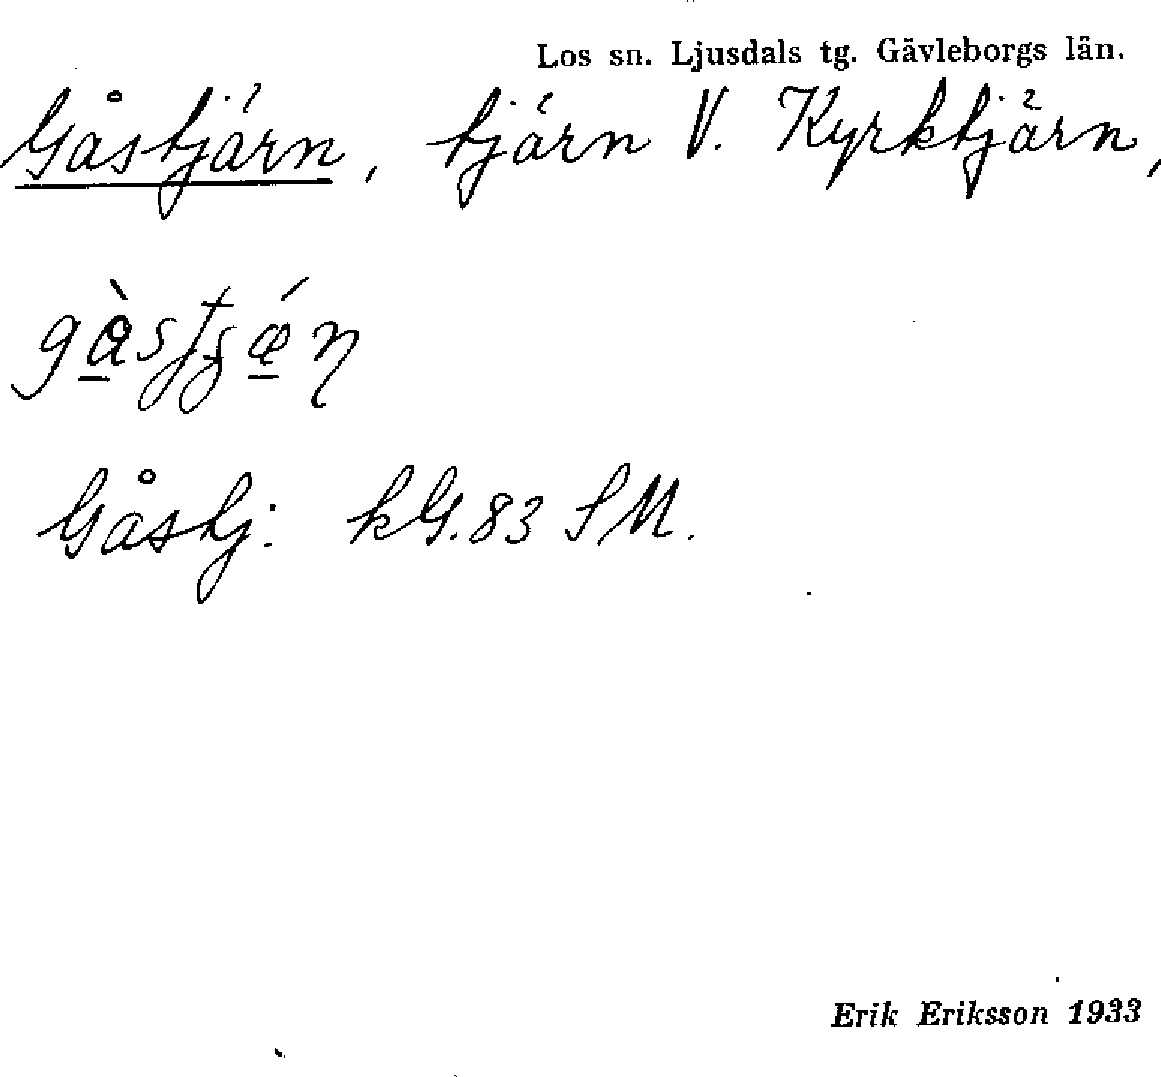 Los sn. Ljusdals tg. Gävleborgs län.
Gåstjärn, tjärn V. Kyrktjärn,
Gåstj: kG. 83 SM.
Erik Eriksson 1933